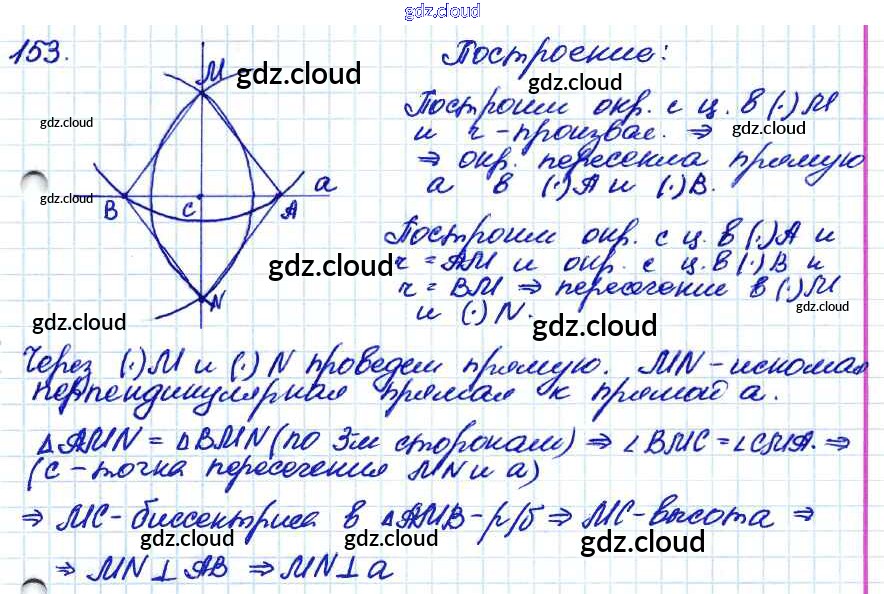 gdz.cloud
153.
Построение:
M
gdz.cloud
gdz.cloud
Построим окр. с ц. в (·)M
gdz.cloud
и r - произвол. ⇒
gdz.cloud
⇒ окр. пересекла прямую
a в (·)A и (·)B.
a
gdz.cloud
B C A
Построим окр. с ц. в (·)A и
r = AM и окр. с ц. в (·)B и
gdz.cloud
r = BM ⇒ пересечение в (·)M
N
и (·)N.
gdz.cloud
gdz.cloud
gdz.cloud
Через (·)M и (·)N проведем прямую. MN - искомая
перпендикулярная прямая к прямой a.
△AMN = △BMN (по 3-м сторонам) ⇒ ∠BMC = ∠CMA. ⇒
(C - точка пересечения MN и a)
⇒ MC - биссектриса в △AMB - р/б ⇒ MC - высота ⇒
gdz.cloud gdz.cloud gdz.cloud
⇒ MN ⊥ AB ⇒ MN ⊥ a
gdz.cloud